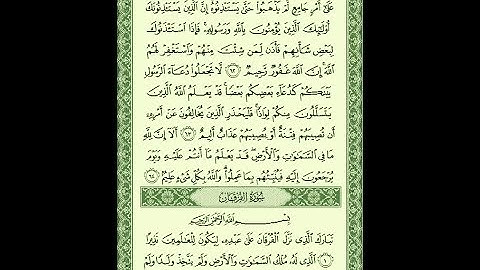 عَلَىٰٓ أَمْرٍ جَامِعٍ لَّمْ يَذْهَبُوا۟ حَتَّىٰ يَسْتَـْٔذِنُوهُ إِنَّ ٱلَّذِينَ يَسْتَـْٔذِنُونَكَ
أُو۟لَـٰٓئِكَ ٱلَّذِينَ يُؤْمِنُونَ بِٱللَّهِ وَرَسُولِهِۦ فَإِذَا ٱسْتَـْٔذَنُوكَ
لِبَعْضِ شَأْنِهِمْ فَأْذَن لِّمَن شِئْتَ مِنْهُمْ وَٱسْتَغْفِرْ لَهُمُ
ٱللَّهَ إِنَّ ٱللَّهَ غَفُورٌ رَّحِيمٌ ٦٢ لَّا تَجْعَلُوا۟ دُعَآءَ ٱلرَّسُولِ
بَيْنَكُمْ كَدُعَآءِ بَعْضِكُم بَعْضًا قَدْ يَعْلَمُ ٱللَّهُ ٱلَّذِينَ
يَتَسَلَّلُونَ مِنكُمْ لِوَاذًا فَلْيَحْذَرِ ٱلَّذِينَ يُخَالِفُونَ عَنْ أَمْرِهِۦٓ
أَن تُصِيبَهُمْ فِتْنَةٌ أَوْ يُصِيبَهُمْ عَذَابٌ أَلِيمٌ ٦٣ أَلَآ إِنَّ لِلَّهِ
مَا فِى ٱلسَّمَـٰوَٰتِ وَٱلْأَرْضِ قَدْ يَعْلَمُ مَآ أَنتُمْ عَلَيْهِ وَيَوْمَ
يُرْجَعُونَ إِلَيْهِ فَيُنَبِّئُهُم بِمَا عَمِلُوا۟ وَٱللَّهُ بِكُلِّ شَىْءٍ عَلِيمٌۢ ٦٤
سُورَةُ الفُرْقَانِ
بِسْمِ ٱللَّهِ ٱلرَّحْمَـٰنِ ٱلرَّحِيمِ
تَبَارَكَ ٱلَّذِى نَزَّلَ ٱلْفُرْقَانَ عَلَىٰ عَبْدِهِۦ لِيَكُونَ لِلْعَـٰلَمِينَ نَذِيرًا
١ ٱلَّذِى لَهُۥ مُلْكُ ٱلسَّمَـٰوَٰتِ وَٱلْأَرْضِ وَلَمْ يَتَّخِذْ وَلَدًا وَلَمْ